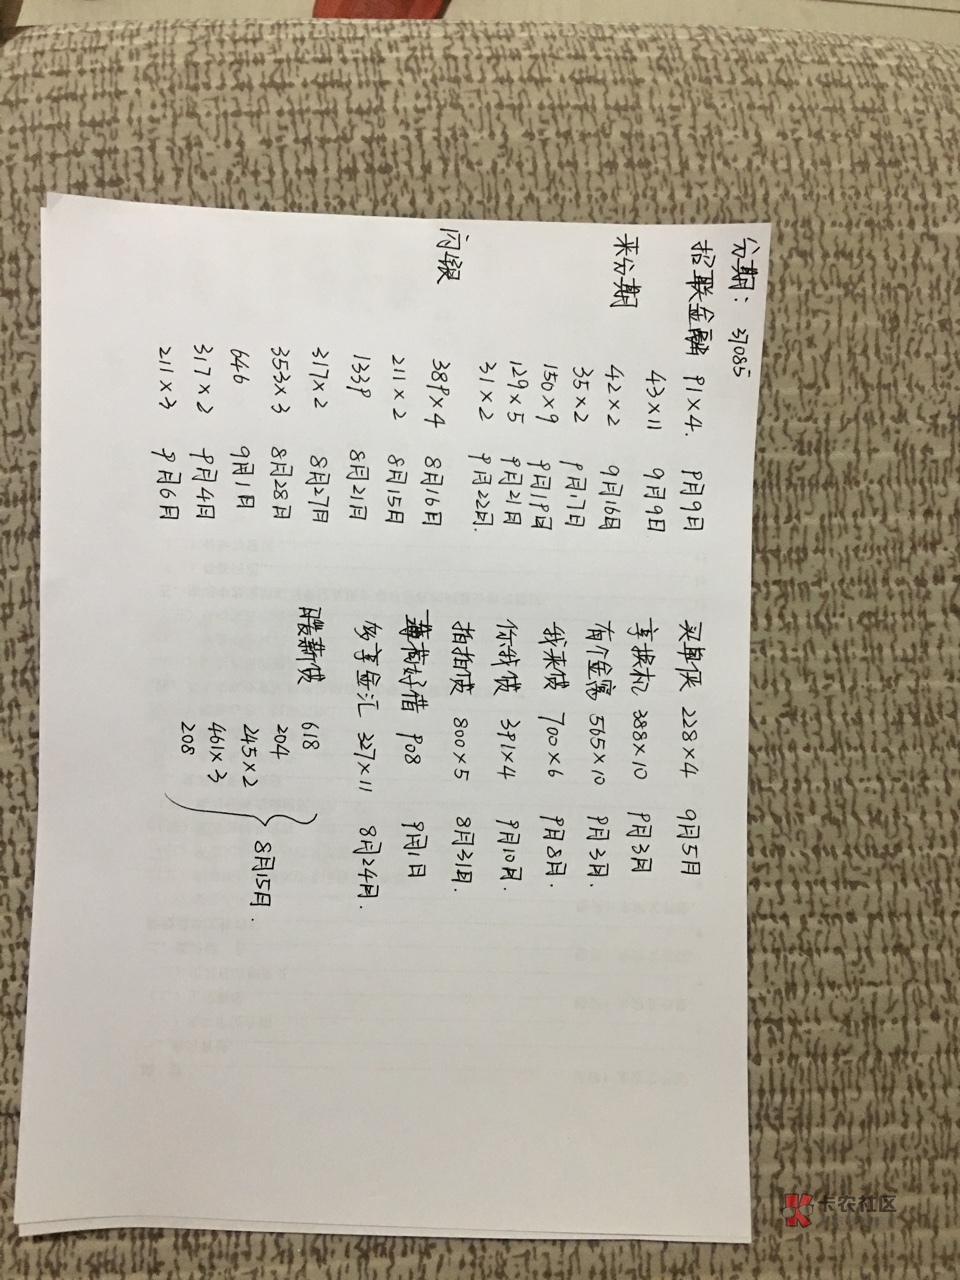 分期：37085
招联金融 91×4. 9月9日
43×11 9月9日
来分期 42×2 9月16日
35×2 9月17日
150×9 9月19日
129×5 9月21日
31×2 9月22日.
闪银 389×4 8月16日
211×2 8月15日
1339 8月21日
317×2 8月27日
353×3 8月28日
646 9月1日
317×2 9月4日
211×3 9月6日
买单侠 228×4 9月5日
享换机 388×10 9月3日
有个金窝 565×10 9月3日.
我来贷 700×6 9月8日.
你我贷 391×4 9月10日.
拍拍贷 800×5 8月31日.
薄荷好借 908 9月1日
多享金汇 327×11 8月24日.
月薪贷 618
204
245×2
461×3
208
8月15日.
卡农社区